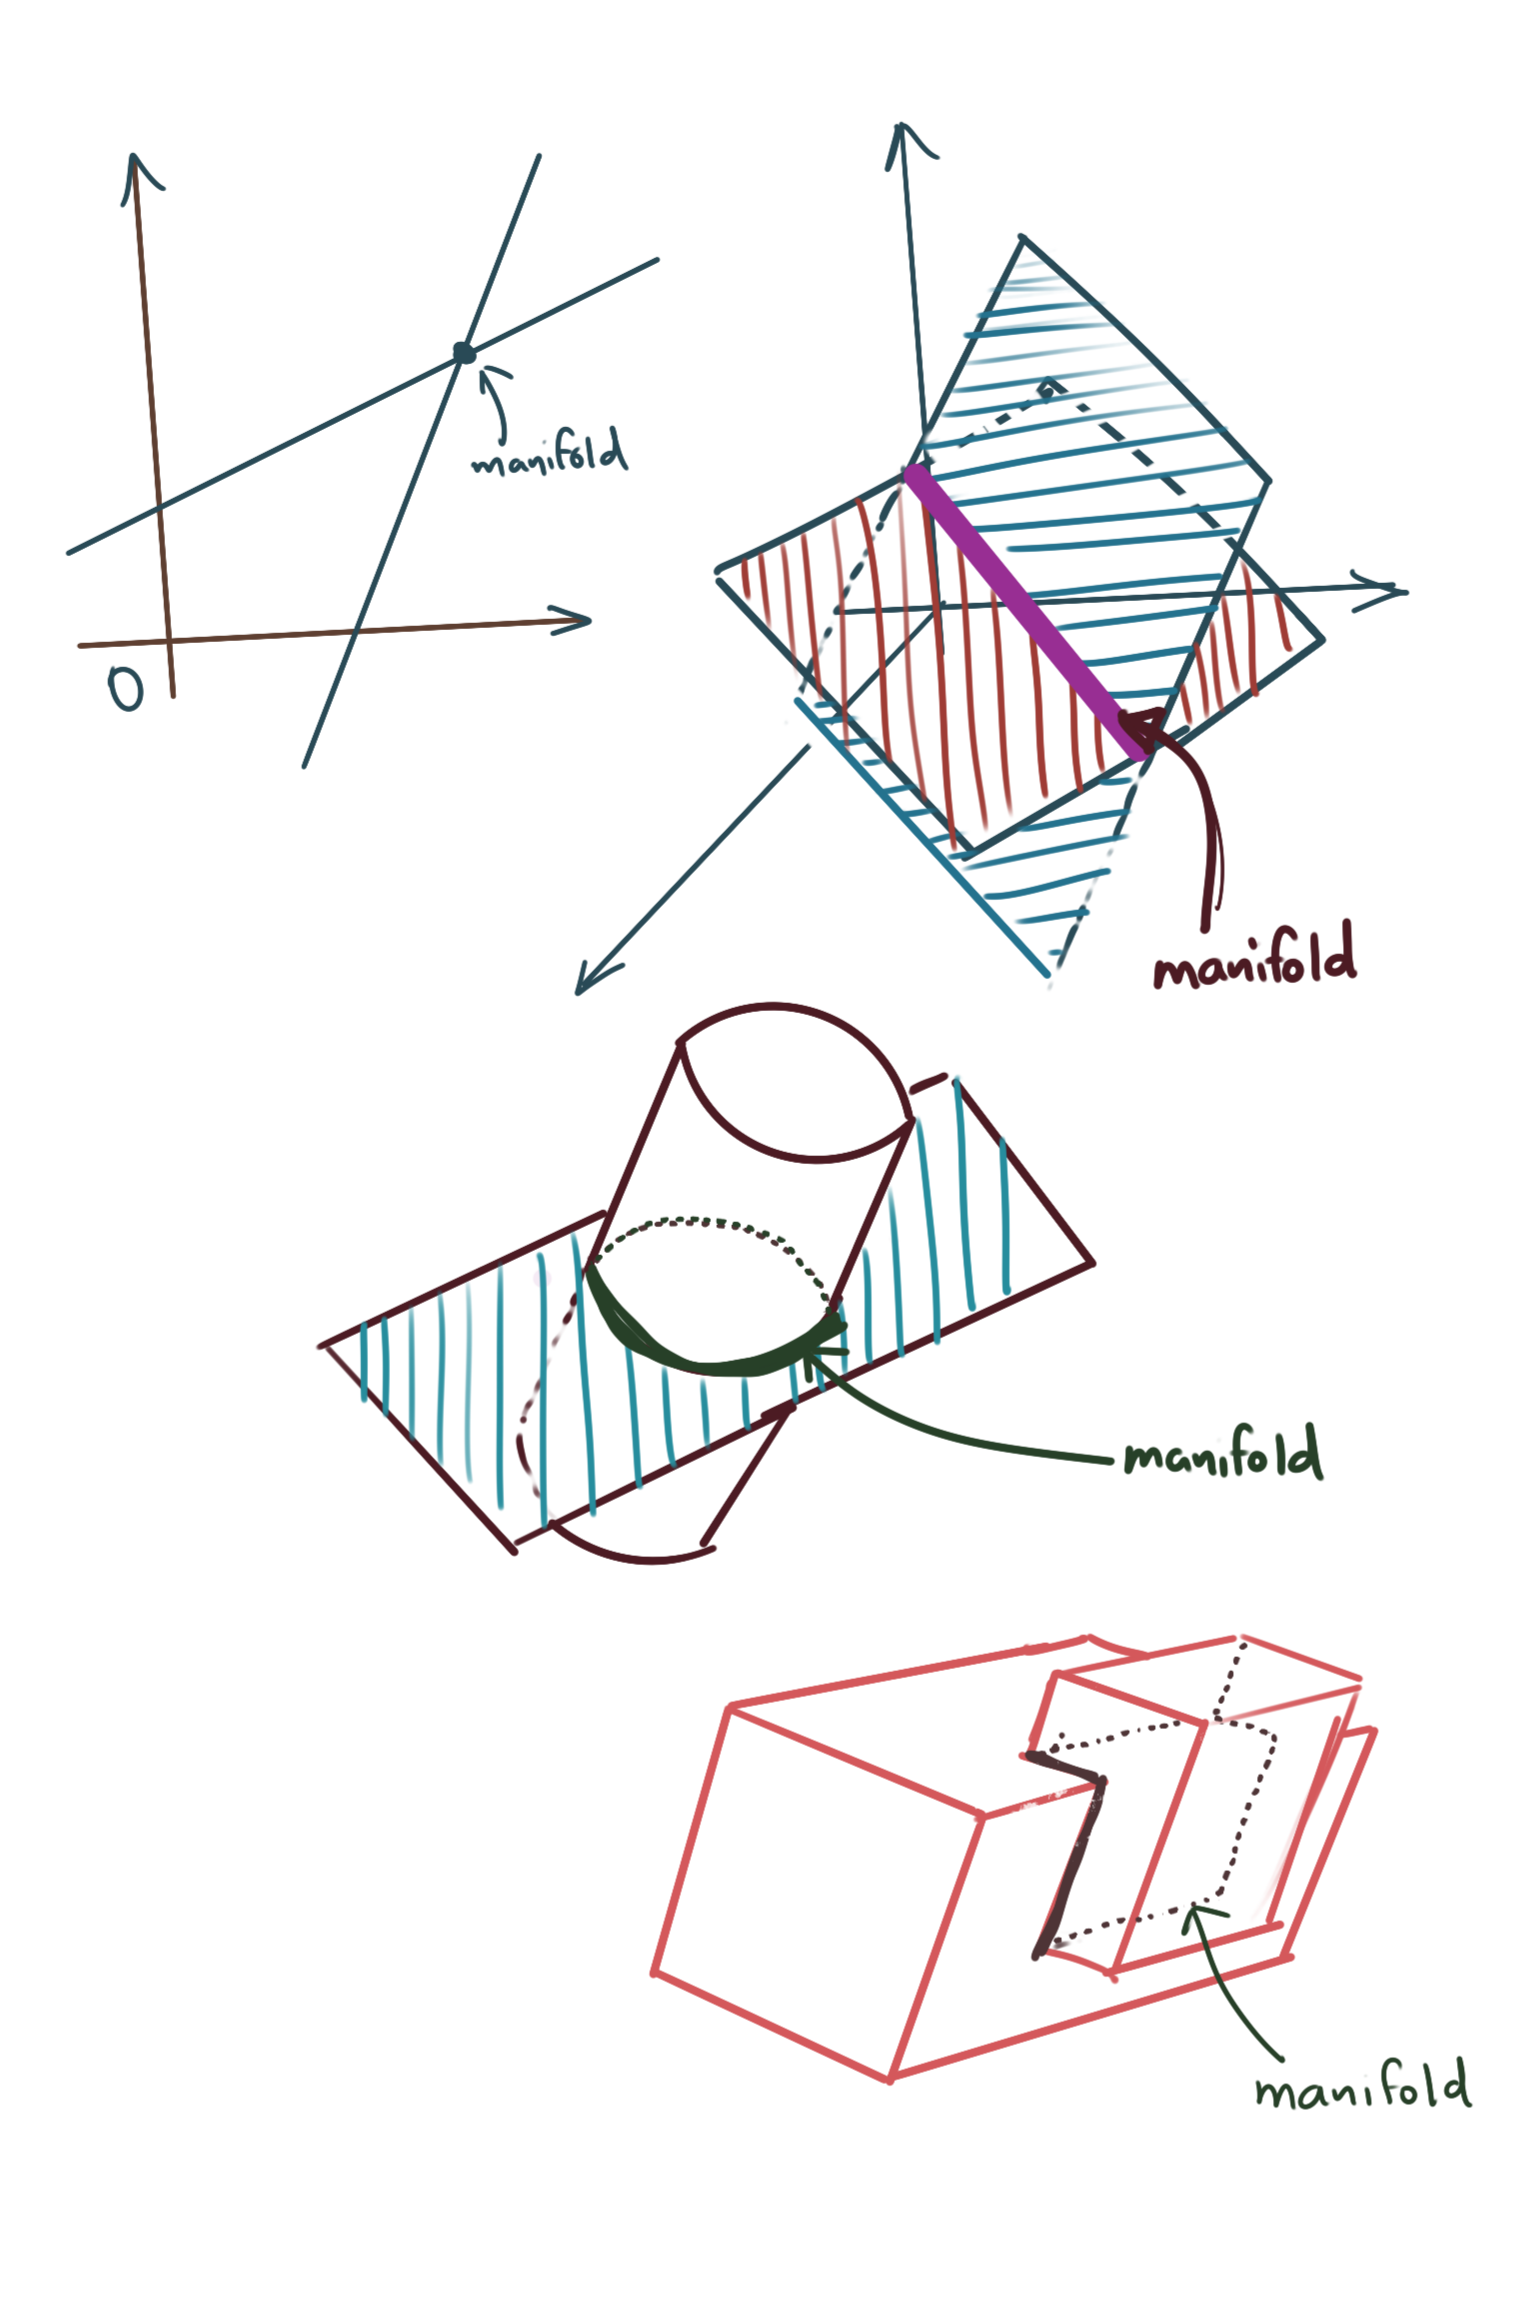 manifold
O
manifold
manifold
manifold